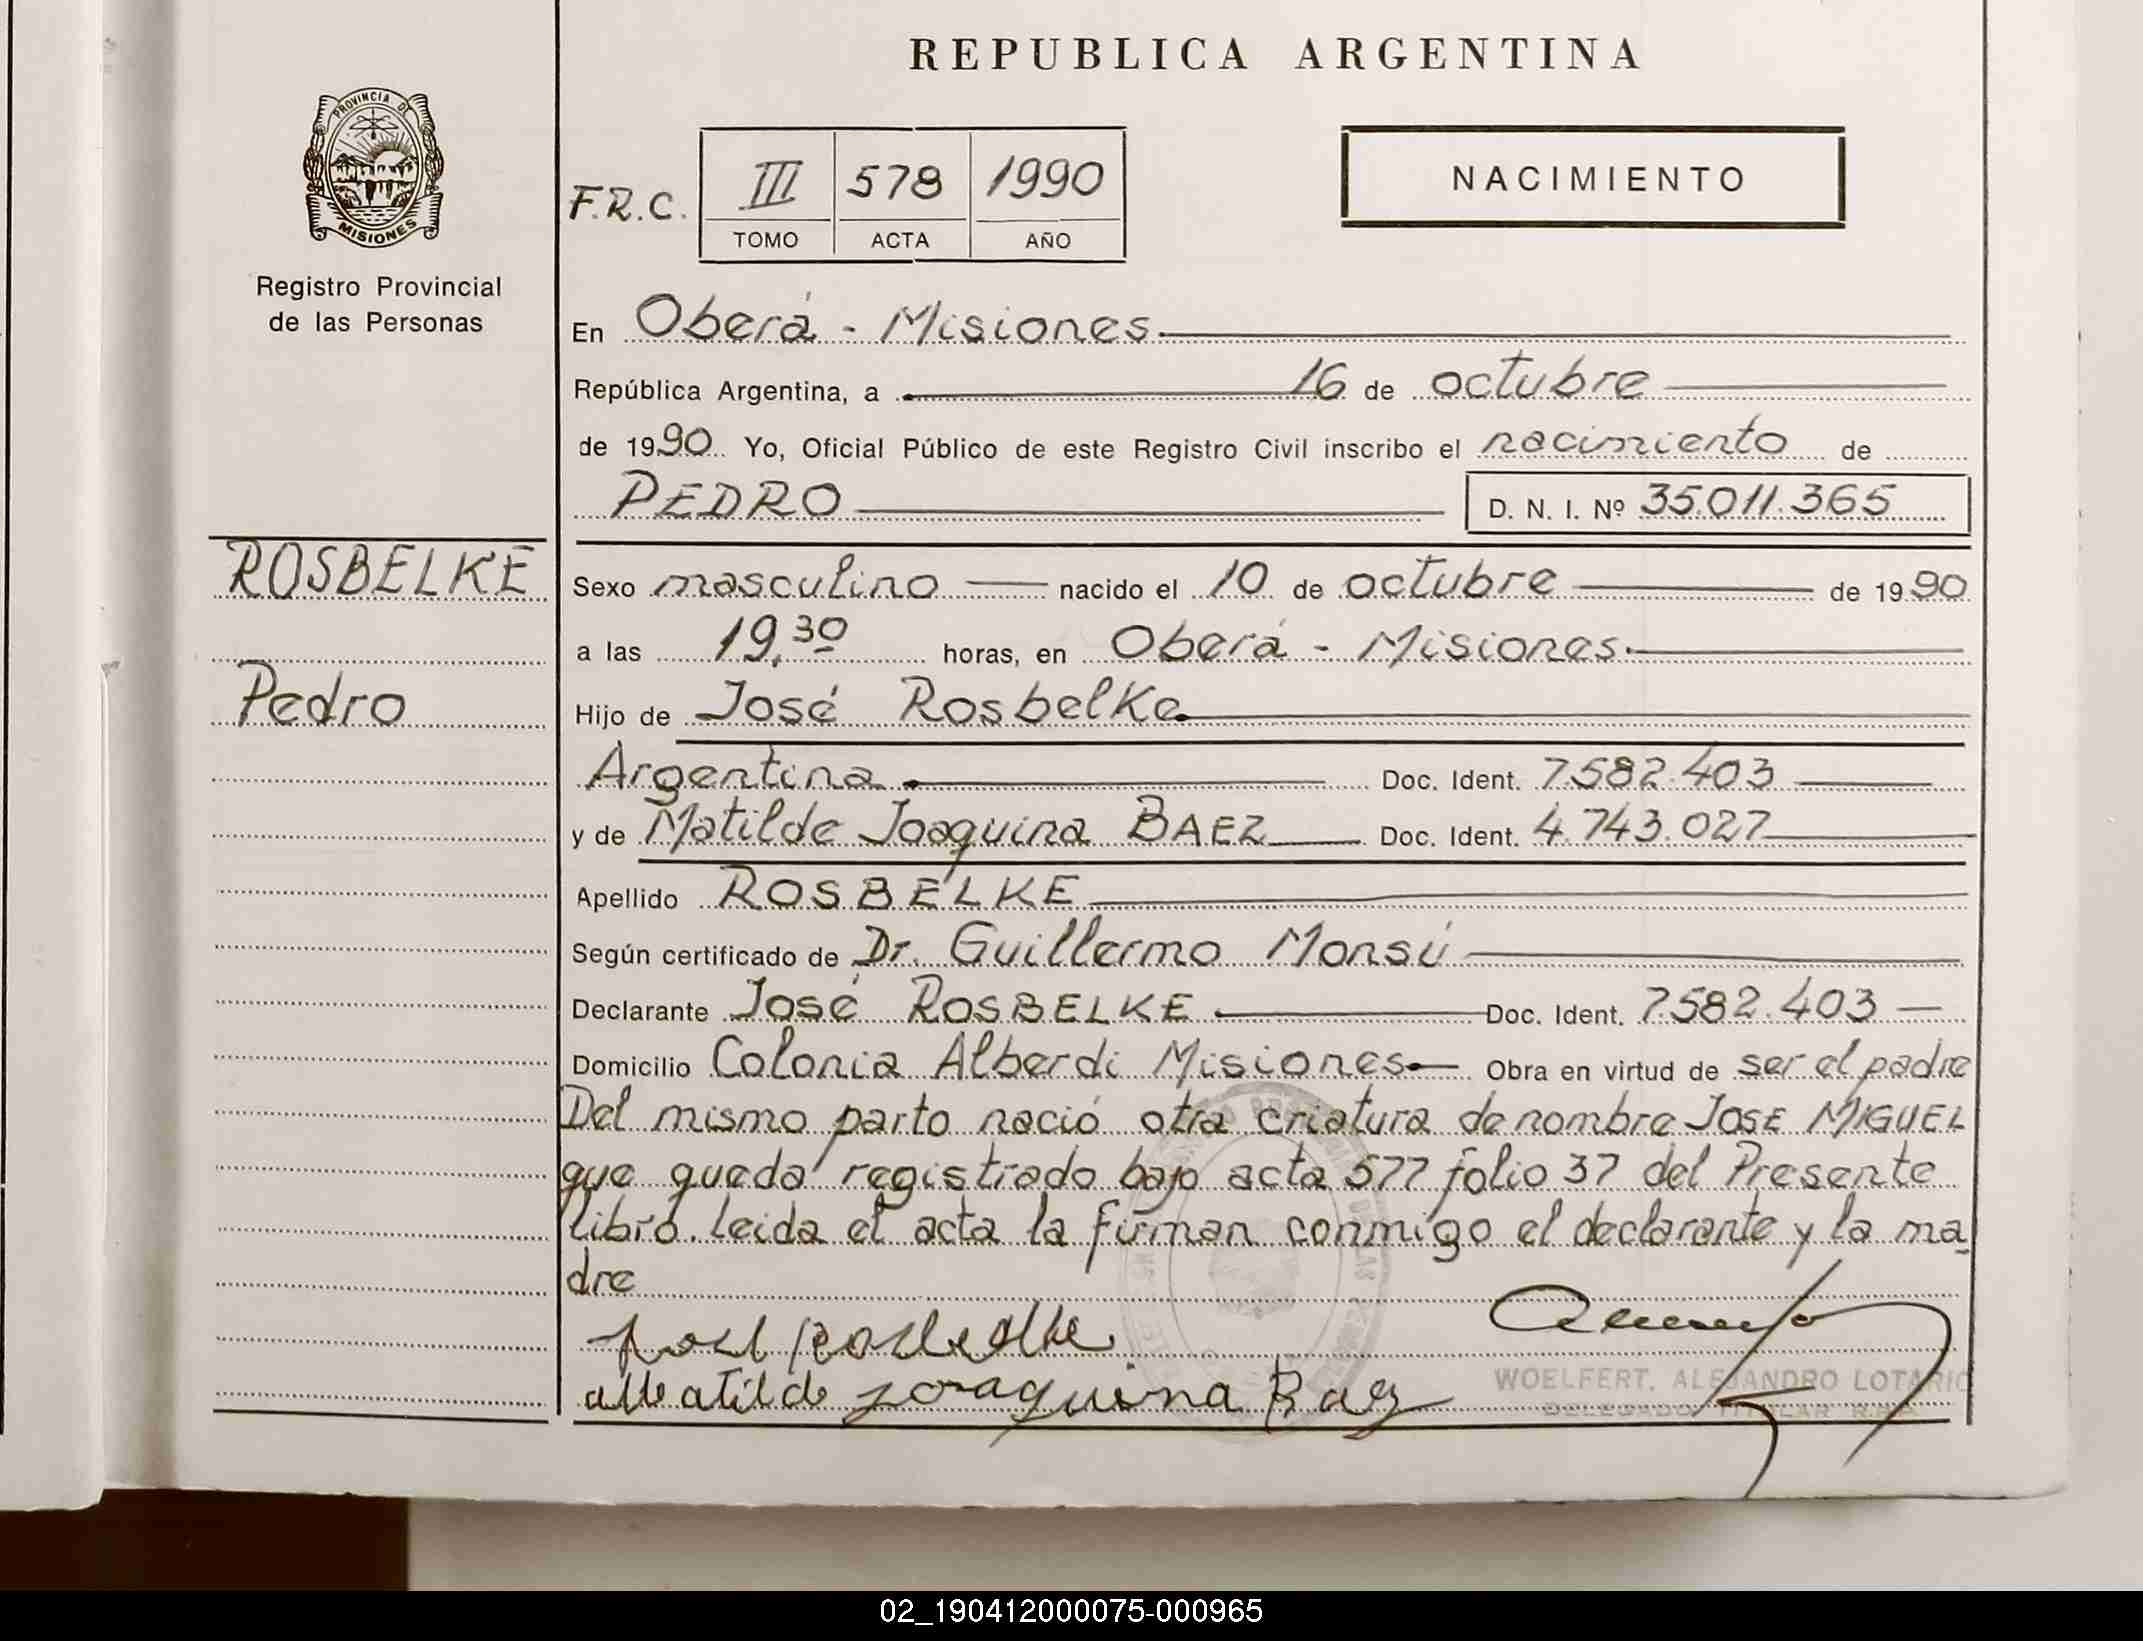 REPUBLICA ARGENTINA
PROVINCIA DE
MISIONES
Registro Provincial
de las Personas
F.R.C.
III 578 1990
TOMO ACTA AÑO
NACIMIENTO
En Oberá - Misiones
República Argentina, a 16 de octubre
de 1990 Yo, Oficial Público de este Registro Civil inscribo el nacimiento de
PEDRO D. N. I. Nº 35.011.365
ROSBELKE
Pedro
Sexo masculino nacido el 10 de octubre de 1990
a las 19,30 horas, en Oberá - Misiones
Hijo de José Rosbelke
Argentina Doc. Ident. 7.582.403
y de Matilde Joaquina BAEZ Doc. Ident. 4.743.027
Apellido ROSBELKE
Según certificado de Dr. Guillermo Monsú
Declarante José ROSBELKE Doc. Ident. 7.582.403
Domicilio Colonia Alberdi Misiones Obra en virtud de ser el padre
Del mismo parto nació otra criatura de nombre JOSE MIGUEL
que queda registrado bajo acta 577 folio 37 del Presente
libro. leida el acta la firman conmigo el declarante y la ma
dre
Matilde Joraquina Baez
WOELFERT, ALEJANDRO LOTARIO
DELEGADO TITULAR R.P.P.
02_190412000075-000965